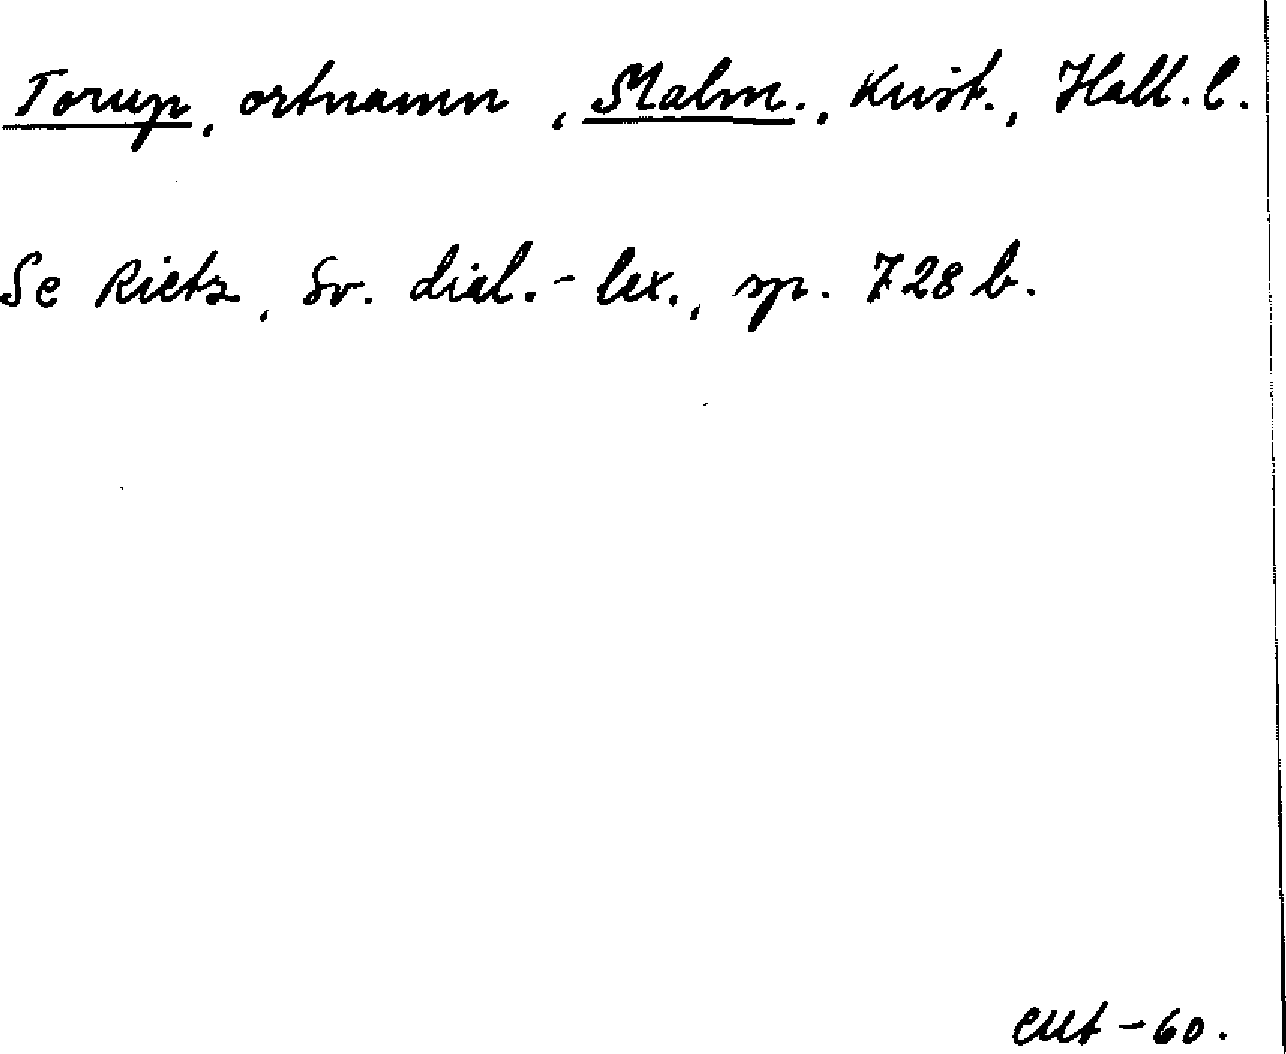 Torup, ortnamn, Malm., Krist., Hall. l.
Se Rietz, Sv. dial.-lex., sp. 728 b.
EUt -60.